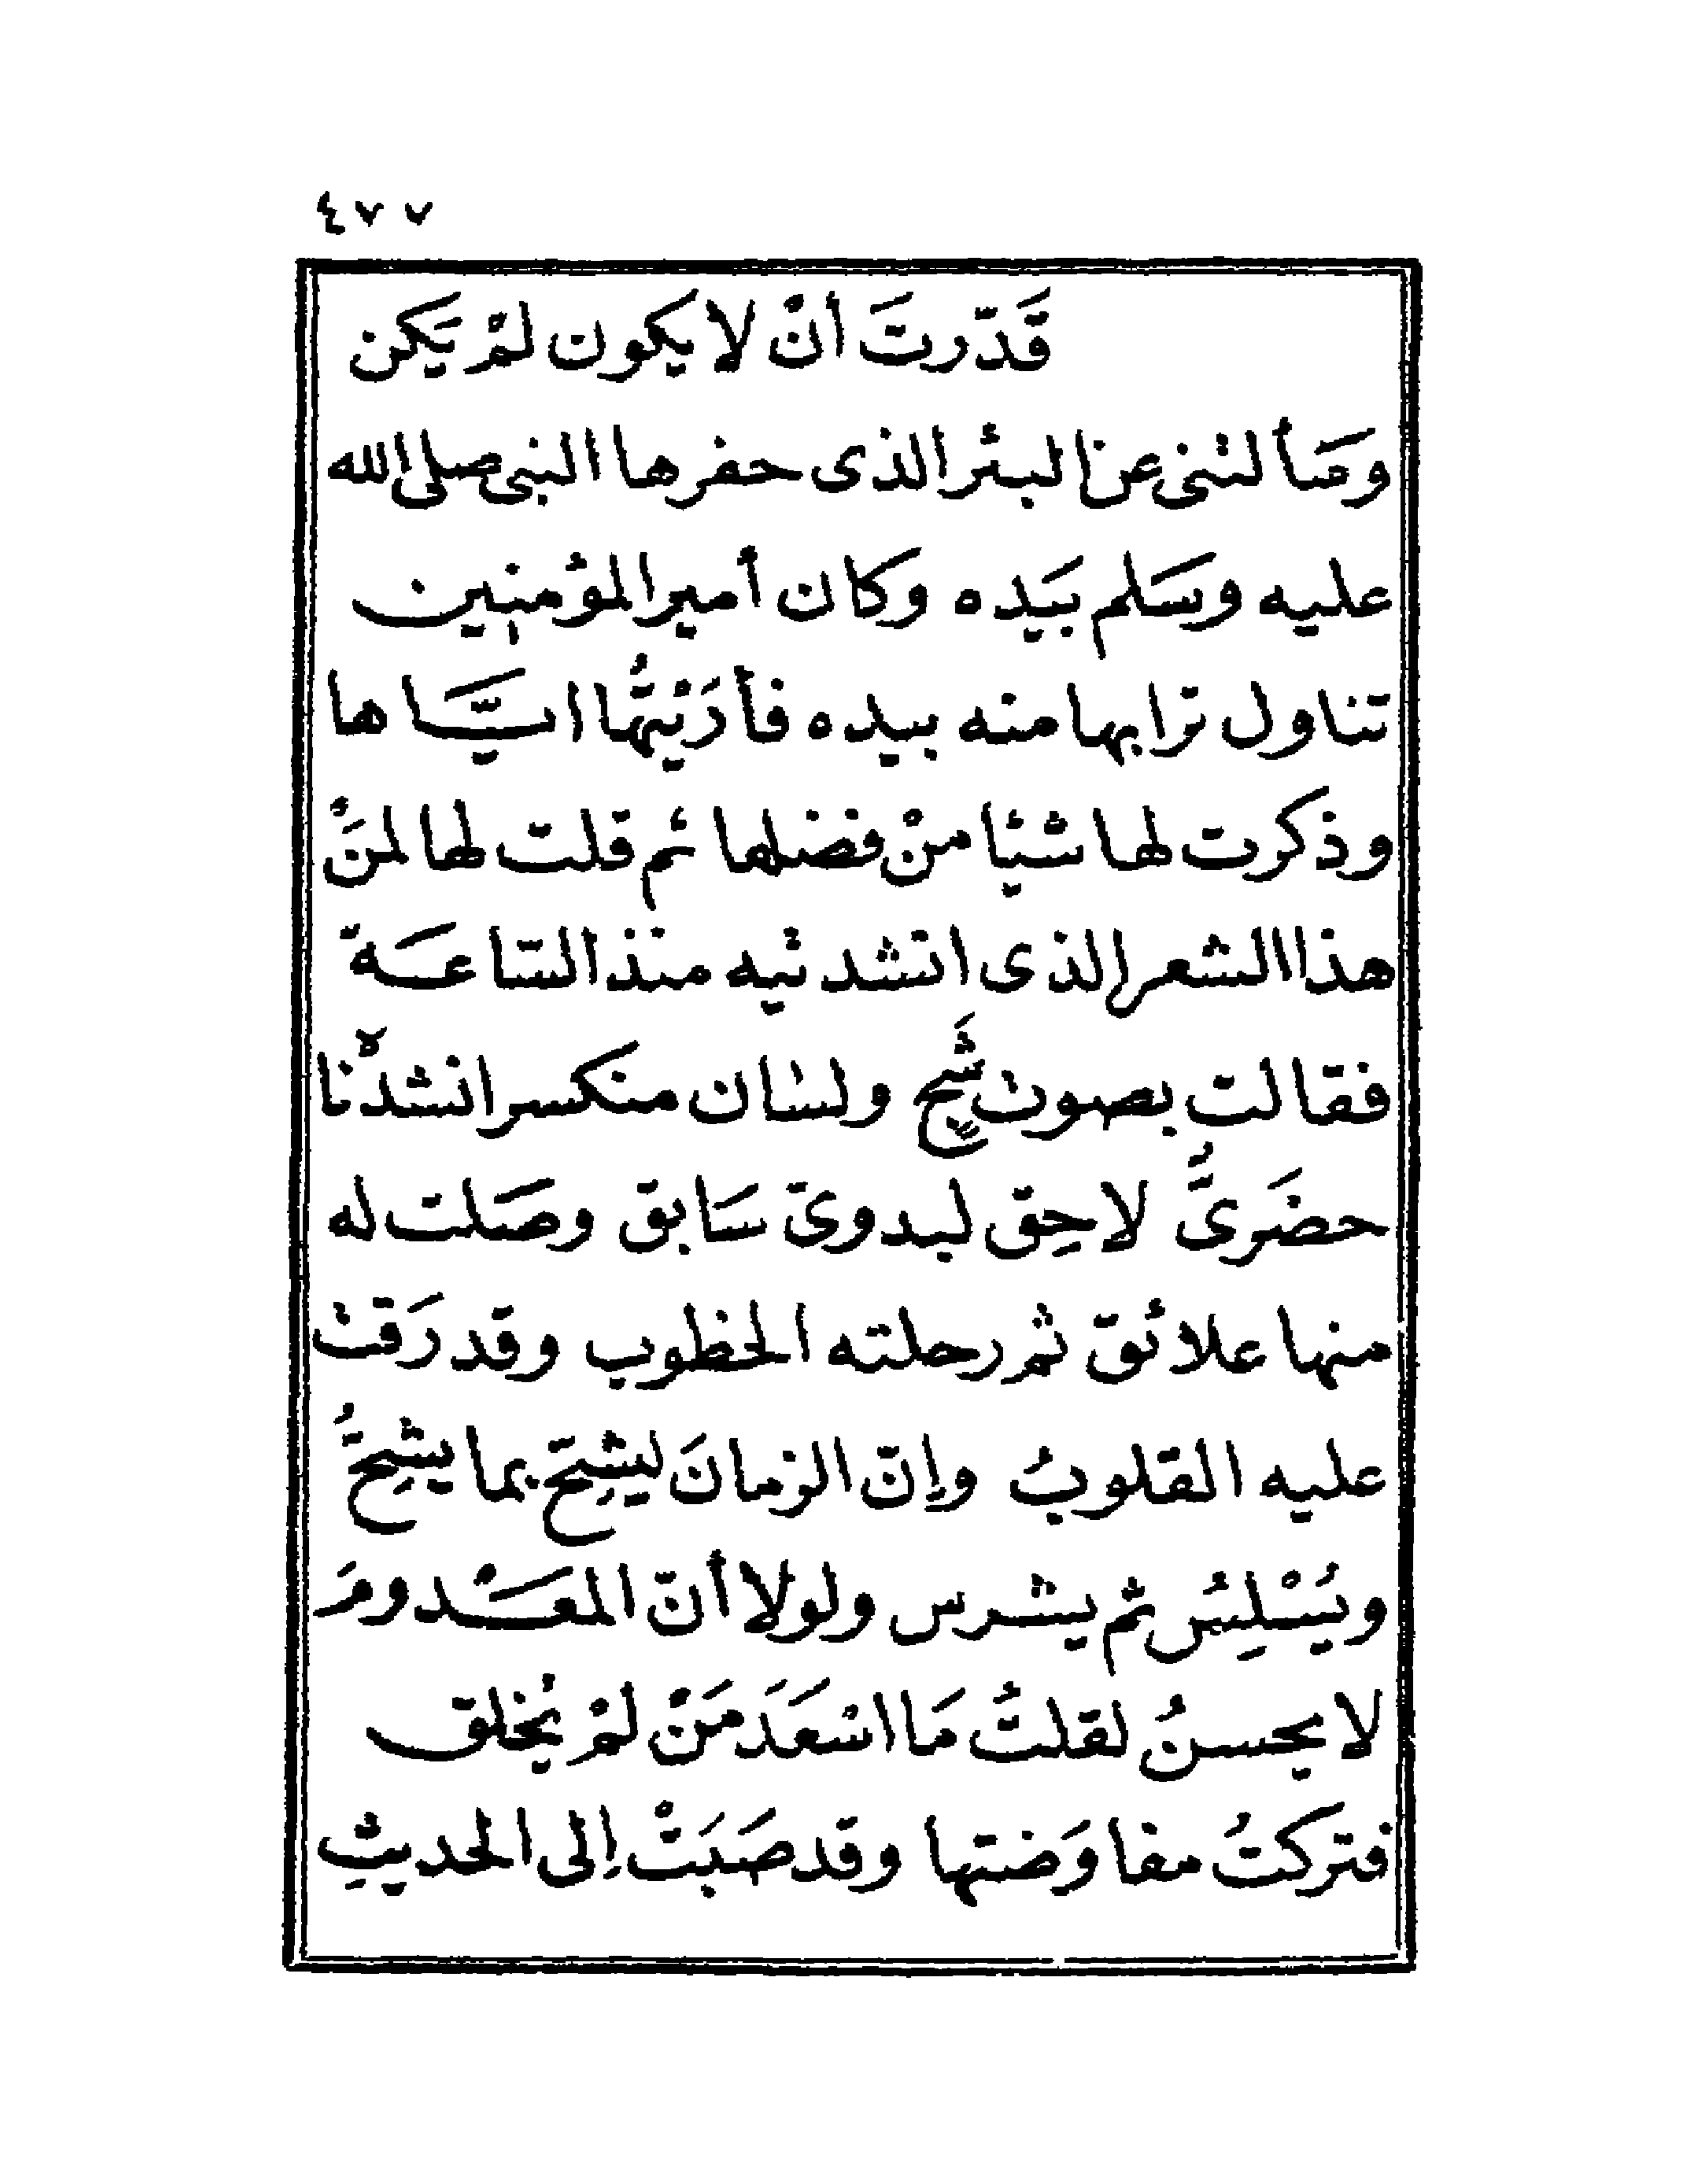 ٤٧٧
قَدّرتَ أنْ لا يكون لمْ يَكن
وسَألتنى عن البئر الذى حفرها النبى صلى الله
عليه وسَلم بيَده وكان أمير المؤمنين
تناول ترابها منه بيده فأرَيْتُها ايّاها
وذكرت لها شيئا منْ فضلها ثم قلت لها لمنْ
هذا الشعر الذى انشدتيه منذ السّاعَة
فقالت بصوت شَجٍ ولسان منكسر انشدْنا
حضَرىٌّ لاحِق لبدوىّ سَابق وصَلت له
منها علائق ثم رحلته الخطوب وقد رَقتْ
عليه القلوبُ وإنّ الزمانَ ليشِحّ بما يشِحُّ
ويُسْلِسُ ثم يشرس ولولا أنّ المعْدومَ
لا يحسنُ لقلتُ مَا اسْعَدَ مَنْ لمْ يُخلق
فتركتُ مفاوَضتها وقد صَبَتْ إلى الحديثِ